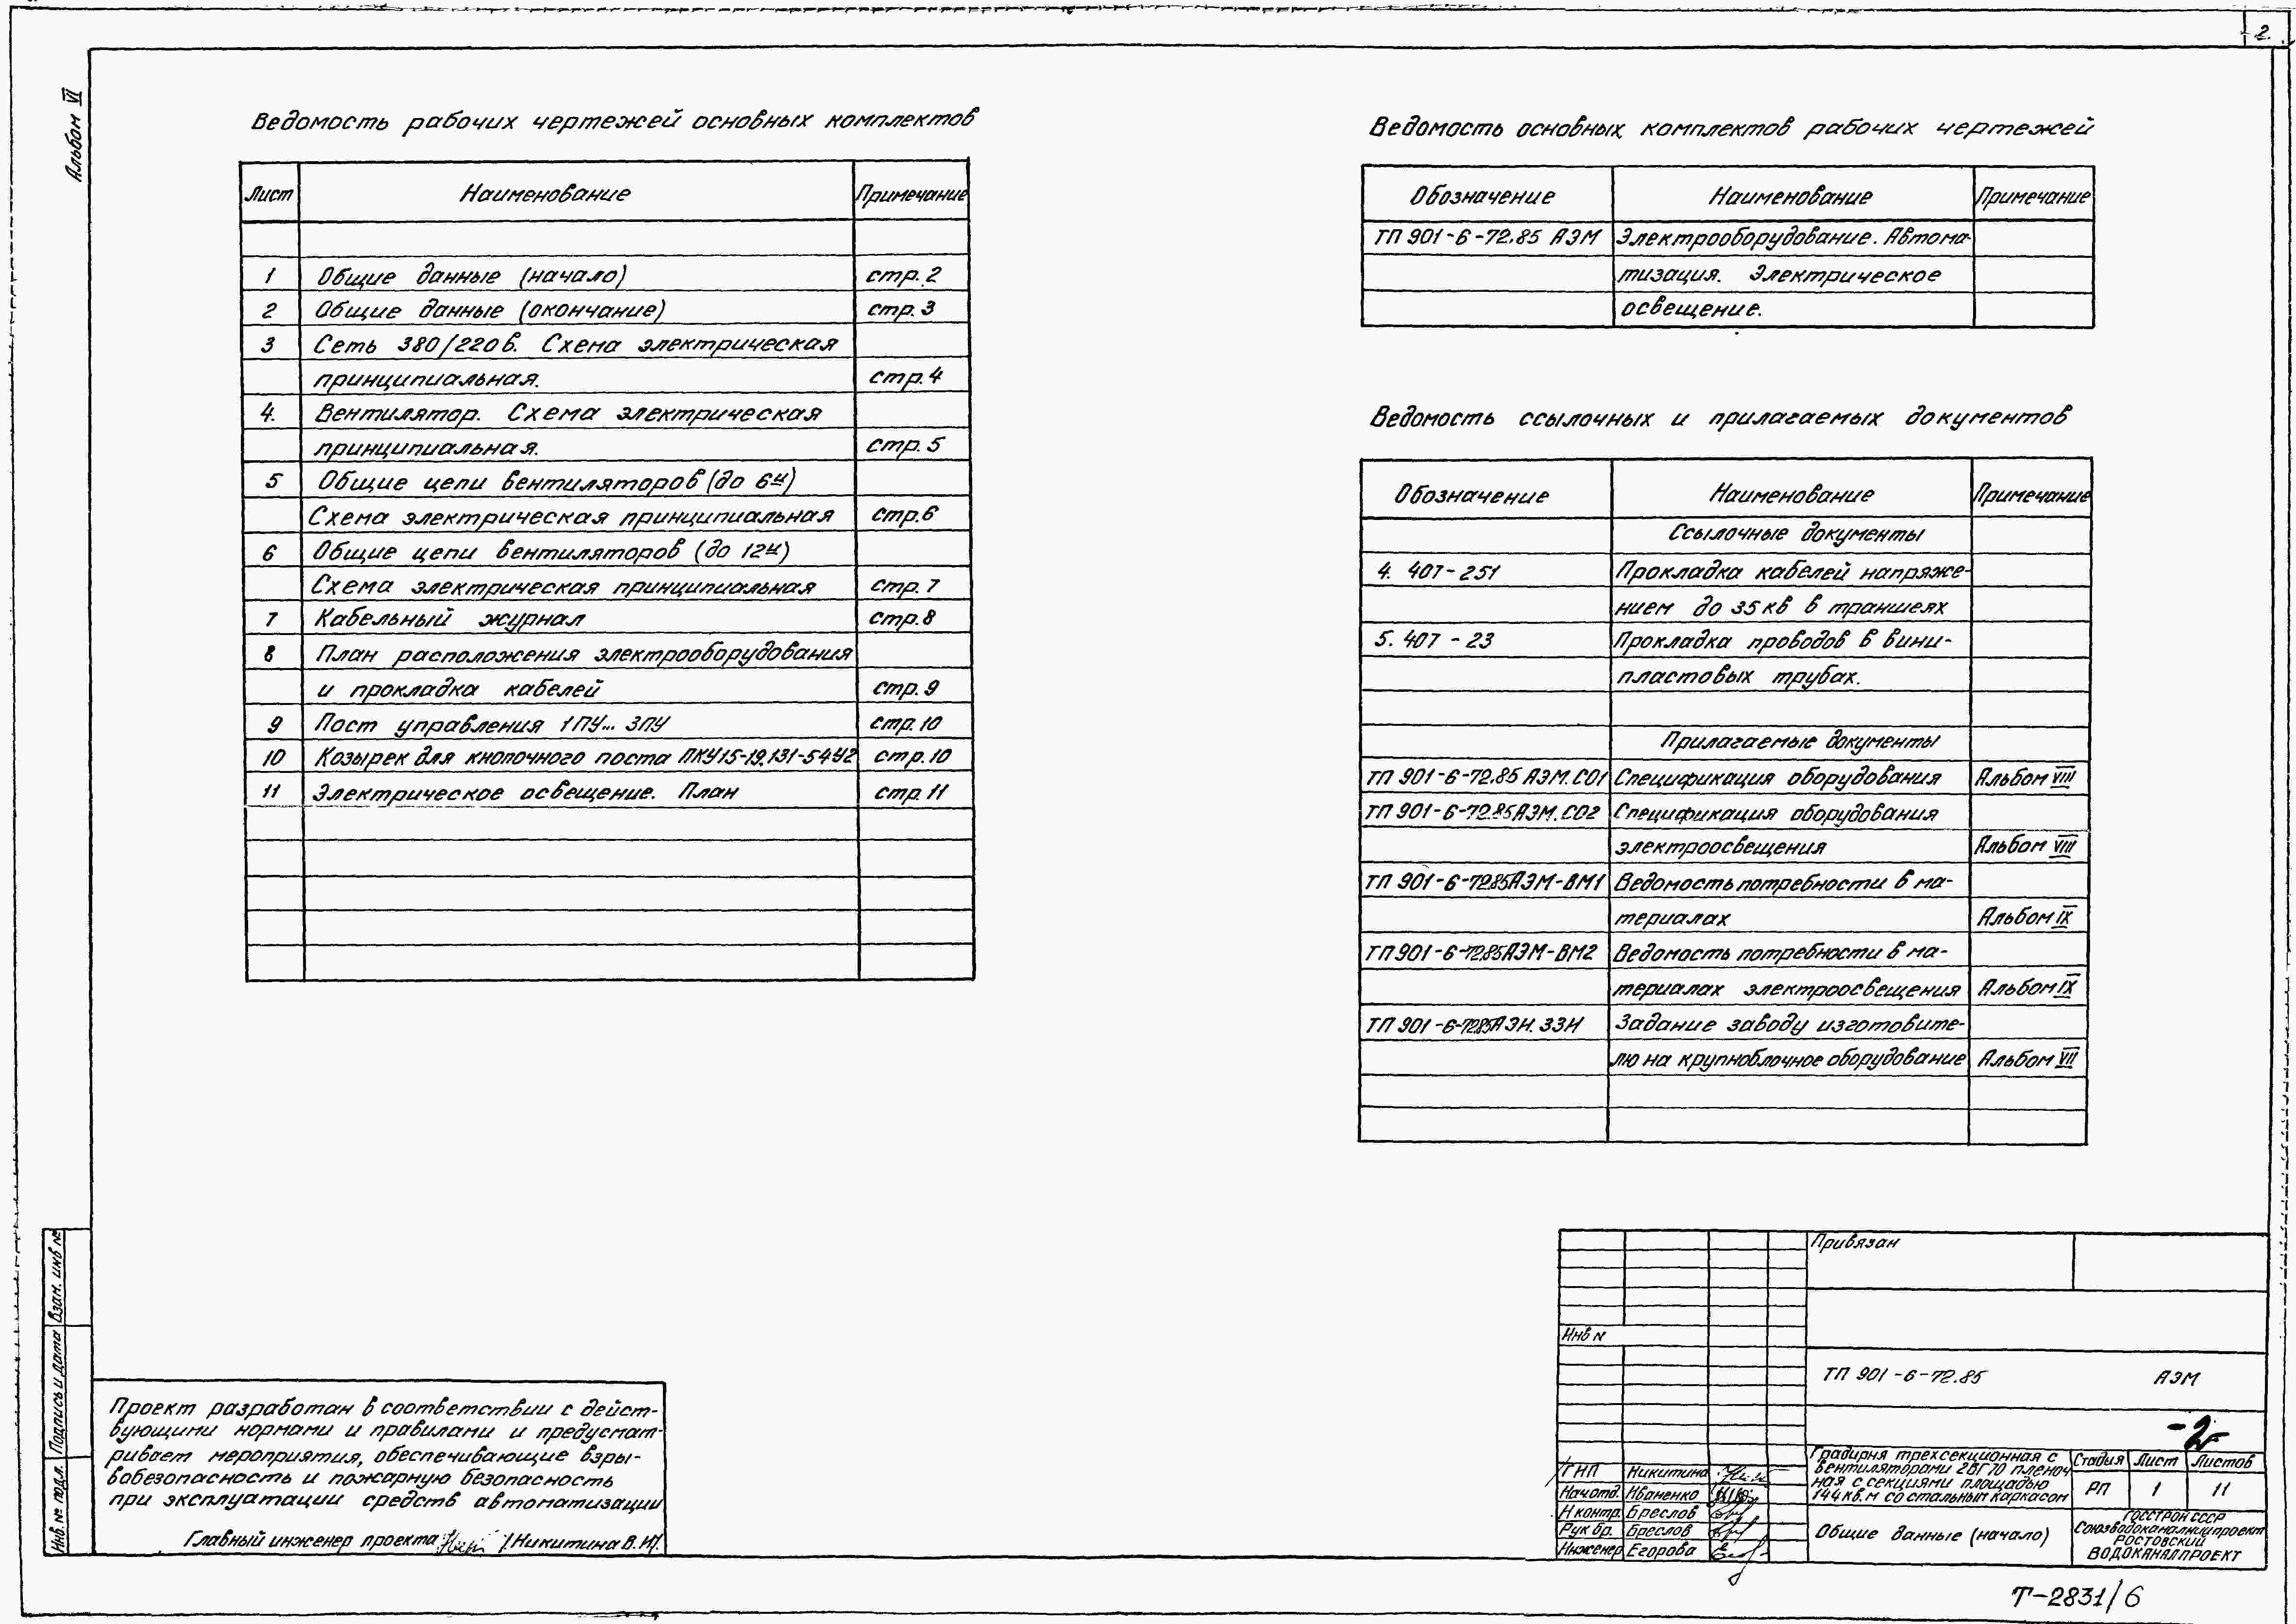 2.
Альбом VI
Ведомость рабочих чертежей основных комплектов
Лист Наименование Примечание
1 Общие данные (начало) стр. 2
2 Общие данные (окончание) стр. 3
3 Сеть 380/220в. Схема электрическая
принципиальная. стр. 4
4. Вентилятор. Схема электрическая
принципиальная. стр. 5
5 Общие цепи вентиляторов (до 6и)
Схема электрическая принципиальная стр.6
6 Общие цепи вентиляторов (до 12и)
Схема электрическая принципиальная стр. 7
7 Кабельный журнал стр. 8
8 План расположения электрооборудования
и прокладка кабелей стр. 9
9 Пост управления 1ПУ... 3ПУ стр. 10
10 Козырек для кнопочного поста ПКУ15-19.131-54У2 стр. 10
11 Электрическое освещение. План стр. 11
Ведомость основных комплектов рабочих чертежей
Обозначение Наименование Примечание
ТП 901-6-72.85 АЭМ Электрооборудование. Автома-
тизация. Электрическое
освещение.
Ведомость ссылочных и прилагаемых документов
Обозначение Наименование Примечание
Ссылочные документы
4. 407-251 Прокладка кабелей напряже-
нием до 35 кв в траншеях
5. 407 - 23 Прокладка проводов в вини-
пластовых трубах.
Прилагаемые документы
ТП 901-6-72.85 АЭМ.СО1 Спецификация оборудования Альбом VIII
ТП 901-6-72.85 АЭМ.СО2 Спецификация оборудования
электроосвещения Альбом VIII
ТП 901-6-72.85АЭМ-ВМ1 Ведомость потребности в ма-
териалах Альбом IX
ТП 901-6-72.85АЭМ-ВМ2 Ведомость потребности в ма-
териалах электроосвещения Альбом IX
ТП 901-6-72.85АЭН. ЗЗН Задание заводу изготовите-
лю на крупноблочное оборудование Альбом VII
Взам. инв №
Подпись и дата
Инв. № подл.
Проект разработан в соответствии с дейст-
вующими нормами и правилами и предусмат-
ривает мероприятия, обеспечивающие взры-
вобезопасность и пожарную безопасность
при эксплуатации средств автоматизации
Главный инженер проекта /Никитина В.И/.
Привязан
Инв N
ТП 901-6-72.85 АЭМ
-2-
ГИП Никитина
Нач.отд. Иваненко
Н контр. Бреслов
Рук бр. Бреслов
Инженер Егорова
Градирня трехсекционная с
вентиляторами 2ВГ70 пленоч
ная с секциями площадью
144 кв. м со стальным каркасом
Стадия Лист Листов
РП 1 11
Общие данные (начало)
ГОССТРОЙ СССР
Союзводоканалниипроект
РОСТОВСКИЙ
ВОДОКАНАЛПРОЕКТ
Т-2831/6